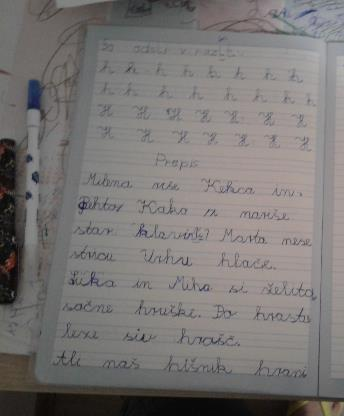 So odsli v
h h h h h h h h
h h h h h h h h
H H H H H H H
H H H H H H H
Prepis
Milena riše Kekca in
Pehto. Kako nariše
star klavirist? Marta nese
stricu Urhu hlače.
Lička in Miha si želita
sočne hruške. Po hrastu
leze siv hrošč.
Ali naš hišnik hrani